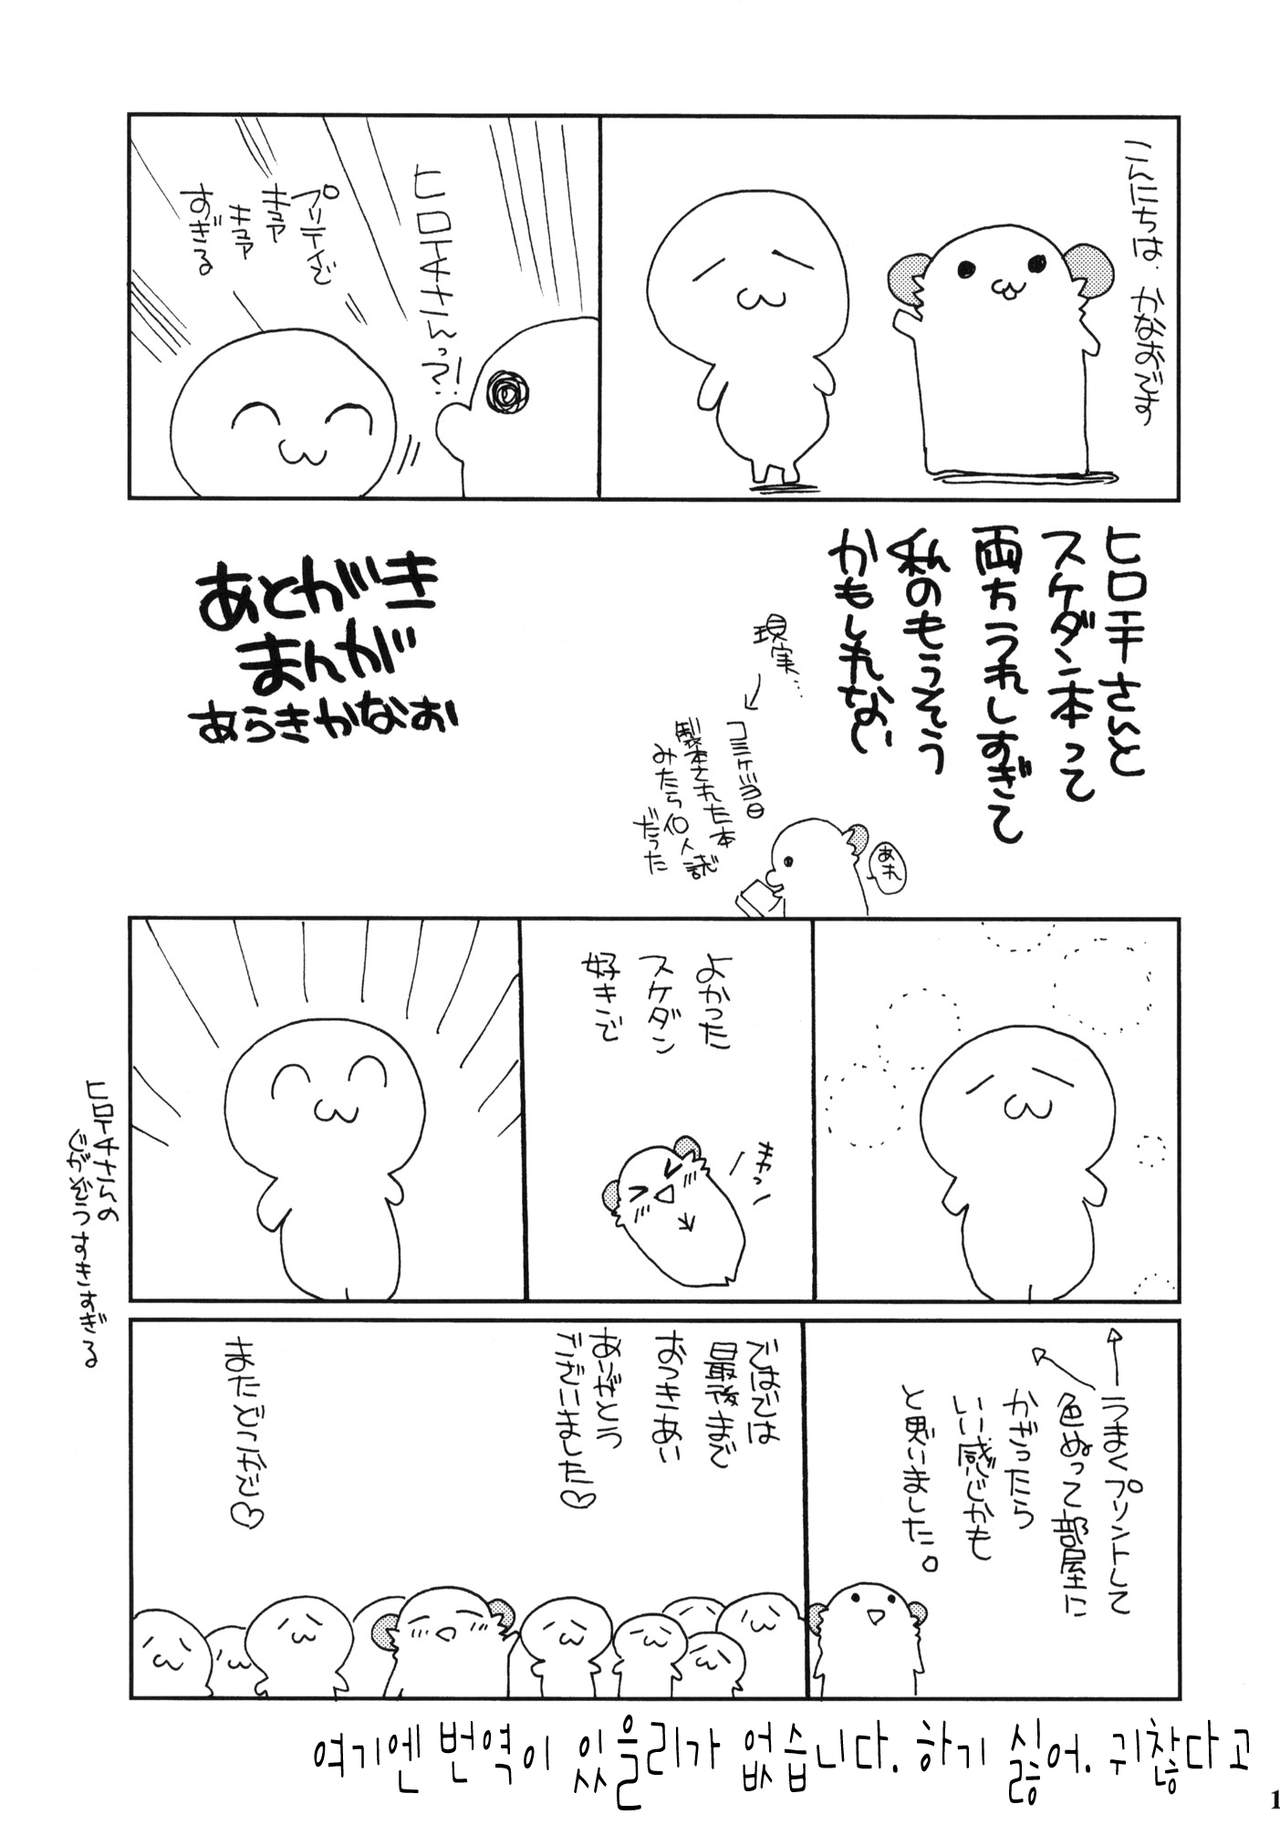 こんにちは、かなおです
ヒロエチさんっ?!
プリティで
キュア
キュア
すぎる
ヒロエチさんと
スケダン本って
両方うれしすぎて
私のもうそう
かもしれない
現実…
コミケ当日
製本された本
みたら個人誌
だった
あれ
あとがき
まんが
あらきかなお
よかった
スケダン
好きで
キャっ
ヒロエチさんの
じがぞうすきすぎる
うまくプリントして
色ぬって部屋に
かざったら
いい感じかも
と思いました。
ではでは
最後まで
おつきあい
ありがとう
ございました♡
またどこかで♡
여기엔 번역이 있을리가 없습니다. 하기 싫어. 귀찮다고
1